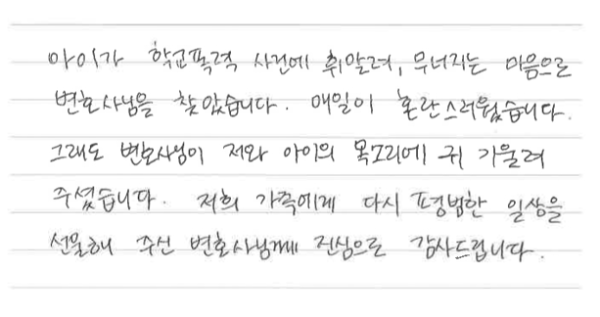 아이가 학교폭력 사건에 휘말려, 무너지는 마음으로
변호사님을 찾았습니다. 매일이 혼란스러웠습니다.
그래도 변호사님이 저와 아이의 목소리에 귀 기울려
주셨습니다. 저희 가족에게 다시 평범한 일상을
선물해 주신 변호사님께 진심으로 감사드립니다.